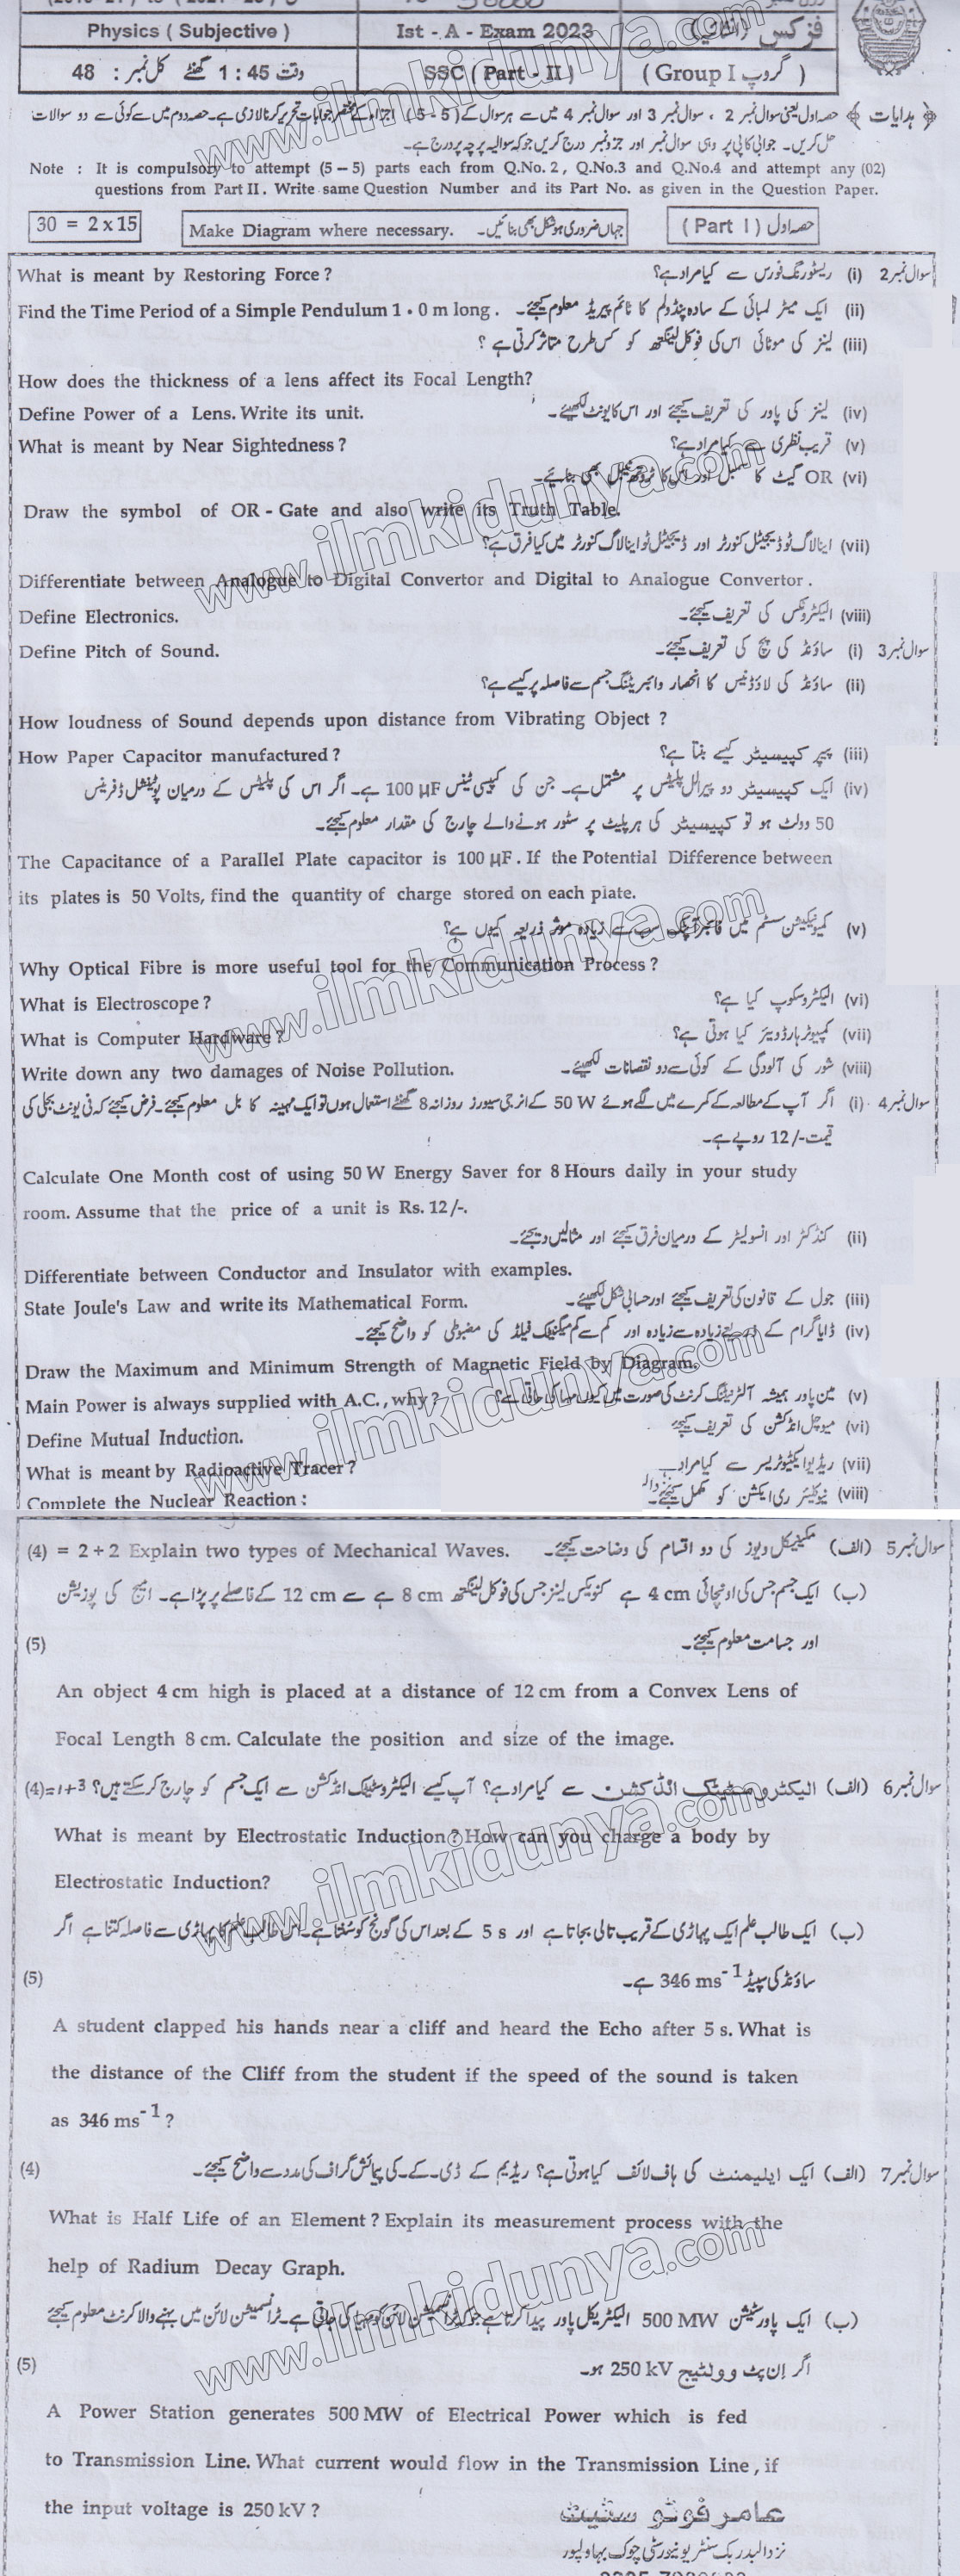 Physics ( Subjective )
Ist - A - Exam 2023
فزکس (انشائیہ)
وقت 1 : 45 گھنٹے کل نمبر : 48
SSC ( Part - II )
( Group I گروپ )
﴿ ہدایات ﴾ حصہ اول یعنی سوال نمبر 2 ، سوال نمبر 3 اور سوال نمبر 4 میں سے ہر سوال کے ( 5 - 5 ) اجزاء کے مختصر جوابات تحریر کرنا لازمی ہے۔ حصہ دوم میں سے کوئی سے دو سوالات
حل کریں۔ جوابی کاپی پر وہی سوال نمبر اور جزو نمبر درج کریں جو کہ سوالیہ پرچہ پر درج ہے۔
Note : It is compulsory to attempt (5 – 5) parts each from Q.No. 2 , Q.No.3 and Q.No.4 and attempt any (02)
questions from Part II . Write same Question Number and its Part No. as given in the Question Paper.
30 = 2 x 15
Make Diagram where necessary. جہاں ضروری ہو شکل بھی بنائیں۔
( Part I ) حصہ اول
سوال نمبر 2 (i) ریسٹورنگ فورس سے کیا مراد ہے؟
What is meant by Restoring Force ?
(ii) ایک میٹر لمبائی کے سادہ پنڈولم کا ٹائم پیریڈ معلوم کیجئے۔
Find the Time Period of a Simple Pendulum 1 • 0 m long .
(iii) لینز کی موٹائی اس کی فوکل لینگتھ کو کس طرح متاثر کرتی ہے ؟
How does the thickness of a lens affect its Focal Length?
(iv) لینز کی پاور کی تعریف کیجئے اور اس کا یونٹ لکھیئے۔
Define Power of a Lens. Write its unit.
(v) قریب نظری سے کیا مراد ہے؟
What is meant by Near Sightedness ?
(vi) OR گیٹ کا سمبل اور اس کا ٹروتھ ٹیبل بھی بنائیے۔
Draw the symbol of OR - Gate and also write its Truth Table.
(vii) اینالاگ ٹو ڈیجیٹل کنورٹر اور ڈیجیٹل ٹو اینالاگ کنورٹر میں کیا فرق ہے؟
Differentiate between Analogue to Digital Convertor and Digital to Analogue Convertor .
(viii) الیکٹرونکس کی تعریف کیجئے۔
Define Electronics.
سوال نمبر 3 (i) ساؤنڈ کی پچ کی تعریف کیجئے۔
Define Pitch of Sound.
(ii) ساؤنڈ کی لاؤڈنیس کا انحصار وائبریٹنگ جسم سے فاصلہ پر کیسے ہے؟
How loudness of Sound depends upon distance from Vibrating Object ?
(iii) پیپر کپیسیٹر کیسے بنتا ہے؟
How Paper Capacitor manufactured ?
(iv) ایک کپیسیٹر دو پیرالل پلیٹس پر مشتمل ہے۔ جن کی کپیسی ٹینس 100 µF ہے۔ اگر اس کی پلیٹس کے درمیان پوٹینشل ڈفرینس
50 وولٹ ہو تو کپیسیٹر کی ہر پلیٹ پر سٹور ہونے والے چارج کی مقدار معلوم کیجئے۔
The Capacitance of a Parallel Plate capacitor is 100 µF . If the Potential Difference between
its plates is 50 Volts, find the quantity of charge stored on each plate.
(v) کمیونیکیشن سسٹم میں فائبر آپٹک سب سے زیادہ موثر ذریعہ کیوں ہے؟
Why Optical Fibre is more useful tool for the Communication Process ?
(vi) الیکٹروسکوپ کیا ہے؟
What is Electroscope ?
(vii) کمپیوٹر ہارڈویئر کیا ہوتی ہے؟
What is Computer Hardware ?
(viii) شور کی آلودگی کے کوئی سے دو نقصانات لکھیئے۔
Write down any two damages of Noise Pollution.
سوال نمبر 4 (i) اگر آپ کے مطالعہ کے کمرے میں لگے ہوئے 50 W کے انرجی سیورز روزانہ 8 گھنٹے استعمال ہوں تو ایک مہینہ کا بل معلوم کیجئے۔ فرض کیجئے کہ فی یونٹ بجلی کی
قیمت -/12 روپے ہے۔
Calculate One Month cost of using 50 W Energy Saver for 8 Hours daily in your study
room. Assume that the price of a unit is Rs. 12 /-.
(ii) کنڈکٹر اور انسولیٹر کے درمیان فرق کیجئے اور مثالیں دیجئے۔
Differentiate between Conductor and Insulator with examples.
(iii) جول کے قانون کی تعریف کیجئے اور حسابی شکل لکھیئے۔
State Joule's Law and write its Mathematical Form.
(iv) ڈایاگرام کے ذریعے زیادہ سے زیادہ اور کم سے کم میگنیٹک فیلڈ کی مضبوطی کو واضح کیجئے۔
Draw the Maximum and Minimum Strength of Magnetic Field by Diagram.
(v) مین پاور ہمیشہ آلٹرنیٹنگ کرنٹ کی صورت میں کیوں مہیا کی جاتی ہے؟
Main Power is always supplied with A.C. , why ?
(vi) میوچل انڈکشن کی تعریف کیجئے
Define Mutual Induction.
(vii) ریڈیو ایکٹیو ٹریسر سے کیا مراد
What is meant by Radioactive Tracer ?
(viii) نیوکلیئر ری ایکشن کو مکمل کیجئے۔
Complete the Nuclear Reaction :
سوال نمبر 5 (الف) مکینیکل ویوز کی دو اقسام کی وضاحت کیجئے۔
(4) = 2 + 2 Explain two types of Mechanical Waves.
(ب) ایک جسم جس کی اونچائی 4 cm ہے کنویکس لینز جس کی فوکل لینگتھ 8 cm ہے سے 12 cm کے فاصلے پر پڑا ہے۔ امیج کی پوزیشن
اور جسامت معلوم کیجئے۔ (5)
An object 4 cm high is placed at a distance of 12 cm from a Convex Lens of
Focal Length 8 cm. Calculate the position and size of the image.
سوال نمبر 6 (الف) الیکٹروسٹیٹک انڈکشن سے کیا مراد ہے؟ آپ کیسے الیکٹروسٹیٹک انڈکشن سے ایک جسم کو چارج کر سکتے ہیں؟ (4)=1+3
What is meant by Electrostatic Induction ? How can you charge a body by
Electrostatic Induction?
(ب) ایک طالب علم ایک پہاڑی کے قریب تالی بجاتا ہے اور 5 s کے بعد اس کی گونج کو سُنتا ہے۔ اس طالب علم کا پہاڑی سے فاصلہ کتنا ہے اگر
ساؤنڈ کی سپیڈ 346 ms⁻¹ ہے۔ (5)
A student clapped his hands near a cliff and heard the Echo after 5 s. What is
the distance of the Cliff from the student if the speed of the sound is taken
as 346 ms⁻¹ ?
سوال نمبر 7 (الف) ایک ایلیمنٹ کی ہاف لائف کیا ہوتی ہے؟ ریڈیم کے ڈی۔کے۔کی پیمائش گراف کی مدد سے واضح کیجئے۔ (4)
What is Half Life of an Element ? Explain its measurement process with the
help of Radium Decay Graph.
(ب) ایک پاور سٹیشن 500 MW الیکٹریکل پاور پیدا کرتا ہے جو کہ ٹرانسمیشن لائن کو مہیا کی جاتی ہے۔ ٹرانسمیشن لائن میں بہنے والا کرنٹ معلوم کیجئے
اگر اِن پٹ وولٹیج 250 kV ہو۔ (5)
A Power Station generates 500 MW of Electrical Power which is fed
to Transmission Line. What current would flow in the Transmission Line , if
the input voltage is 250 kV ?
عامر فوٹو سٹیٹ
نزد البدر بک سنٹر یونیورسٹی چوک بہاولپور
www.ilmkidunya.com
www.ilmkidunya.com
www.ilmkidunya.com
www.ilmkidunya.com
www.ilmkidunya.com
www.ilmkidunya.com